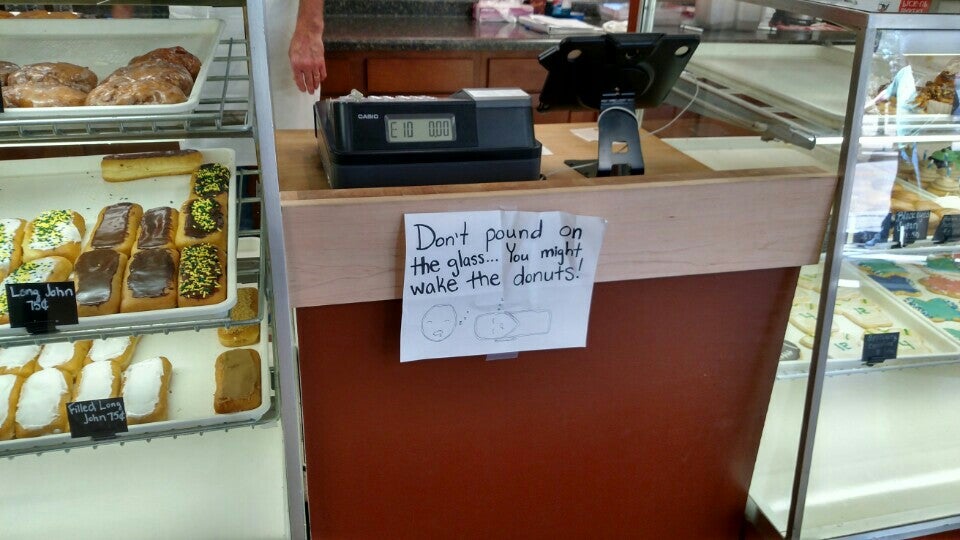 CASIO
E10 0.00
Don't pound on
the glass... You might
wake the donuts!
Long John
75¢
Filled Long
John 75¢